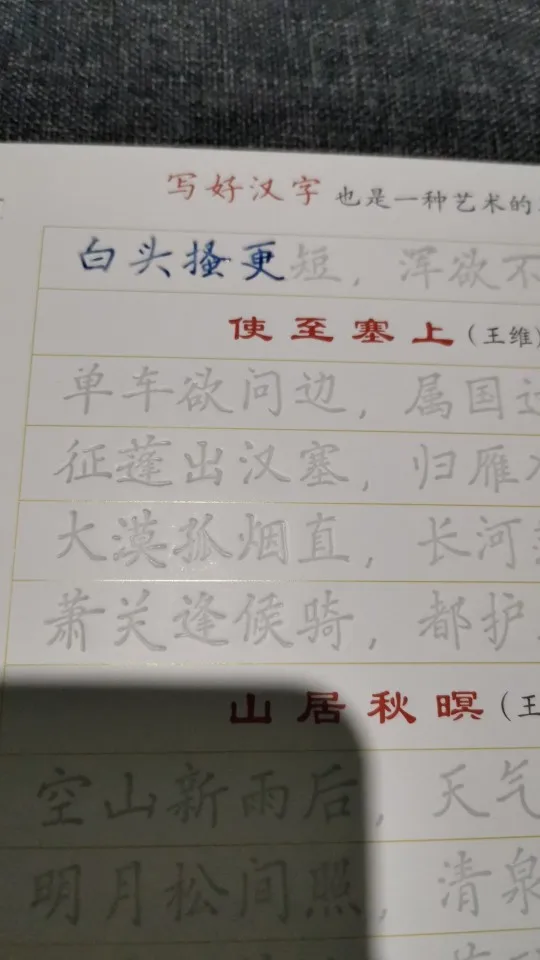 写好汉字 也是一种艺术的
白头搔更短，浑欲不
使至塞上（王维）
单车欲问边，属国过
征蓬出汉塞，归雁
大漠孤烟直，长河
萧关逢候骑，都护
山居秋暝（王
空山新雨后，天气
明月松间照，清泉